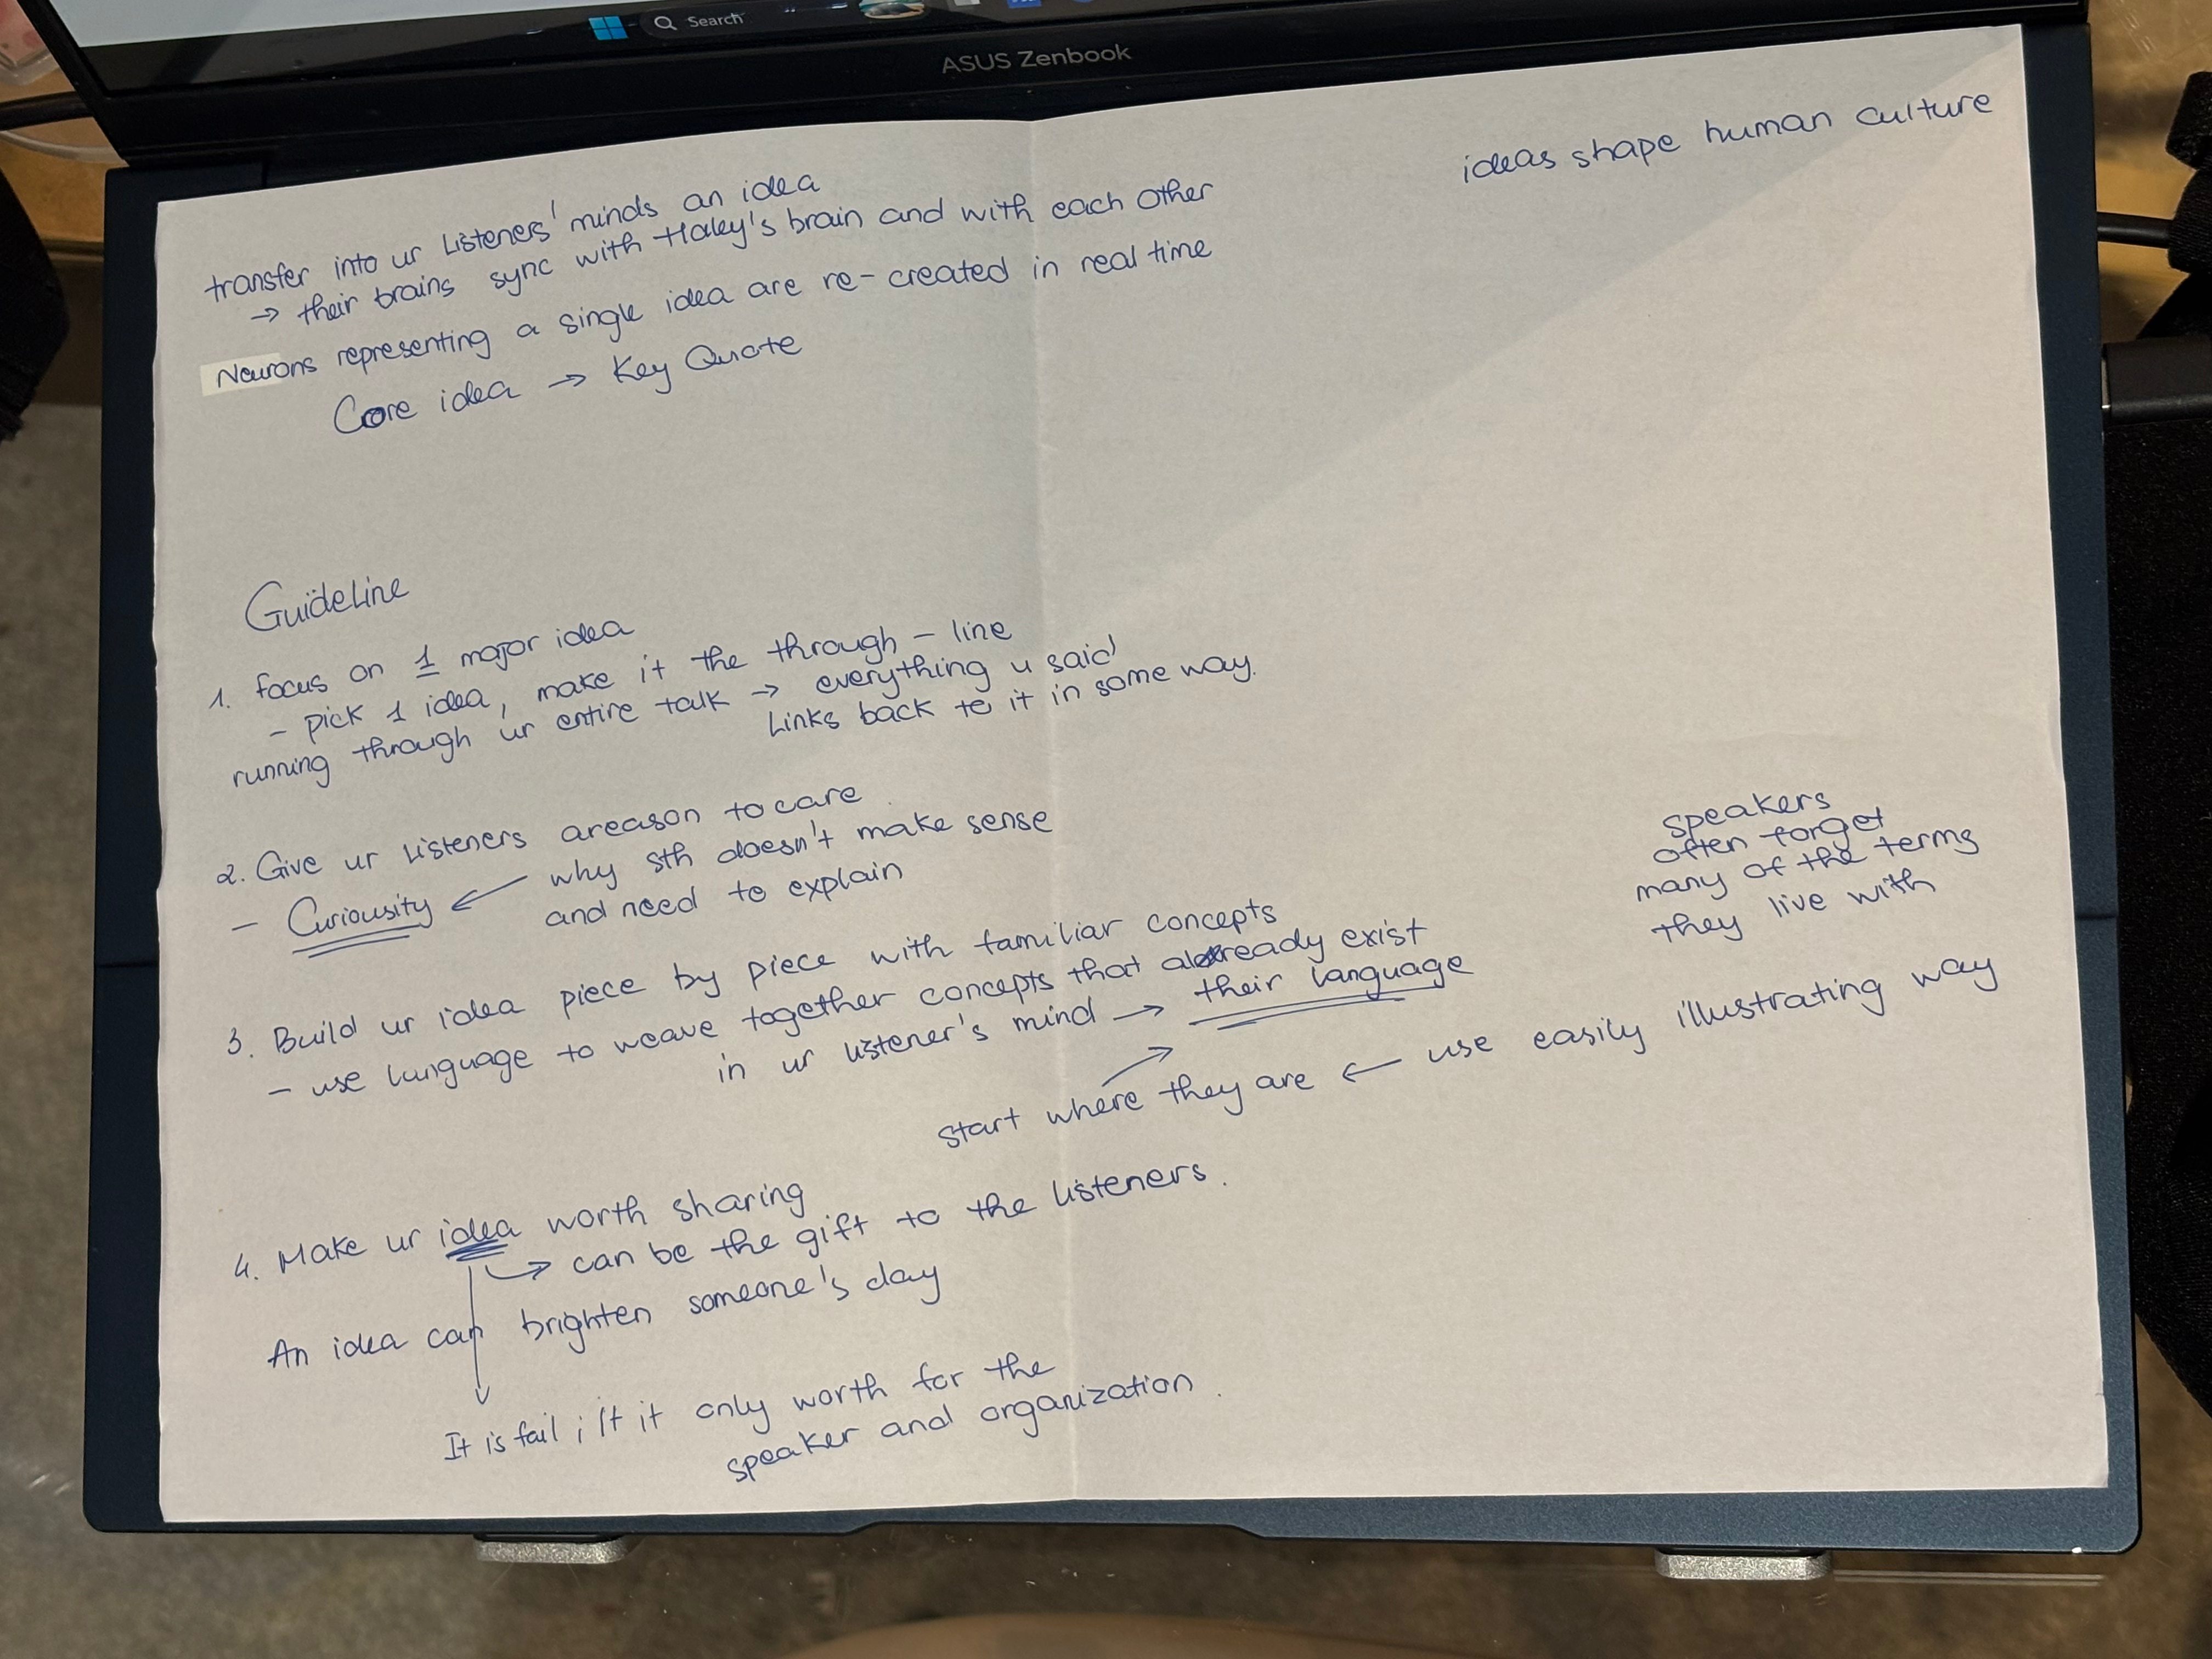 Search
ASUS Zenbook
ideas shape human culture
transfer into ur Listeners' minds an idea
→ their brains sync with Haley's brain and with each other
Neurons representing a single idea are re-created in real time
Core idea → Key Quote
Guideline
1. focus on 1 major idea
- pick 1 idea, make it the through-line
running through ur entire talk → everything u said
Links back to it in some way.
2. Give ur Listeners areason to care
- Curiousity ← why sth doesn't make sense
and need to explain
speakers
often forget
many of the terms
they live with
3. Build ur idea piece by piece with familiar concepts
- use language to weave together concepts that already exist
in ur listener's mind → their language
start where they are ← use easily illustrating way
4. Make ur idea worth sharing
→ can be the gift to the listeners.
An idea can brighten someone's day
It is fail ; it only worth for the
speaker and organization.